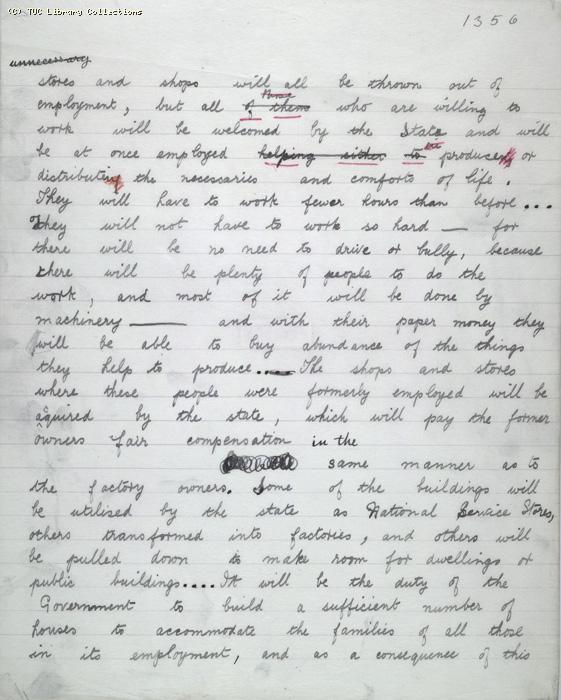 (C) TUC Library Collections
1356
unnecessary
stores and shops will all be thrown out of
employment, but all of them those who are willing to
work will be welcomed by the State and will
be at once employed helping either to in producing or
distributing the necessaries and comforts of life.
They will have to work fewer hours than before...
They will not have to work so hard — for
there will be no need to drive or bully, because
there will be plenty of people to do the
work, and most of it will be done by
machinery — and with their paper money they
will be able to buy abundance of the things
they help to produce..... The shops and stores
where these people were formerly employed will be
acquired by the state, which will pay the former
owners fair compensation in the
same manner as to
the factory owners. Some of the buildings will
be utilised by the state as National Service Stores,
others transformed into factories, and others will
be pulled down to make room for dwellings or
public buildings.... It will be the duty of the
Government to build a sufficient number of
houses to accommodate the families of all those
in its employment, and as a consequence of this